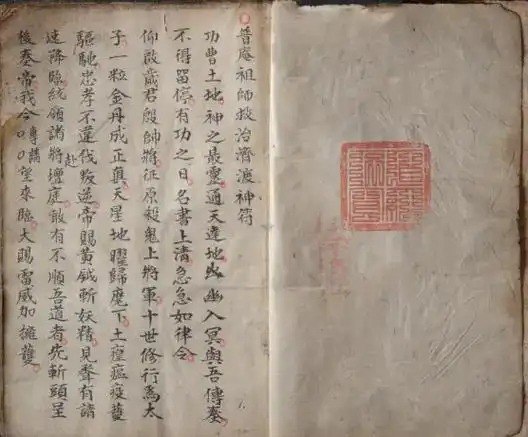 普庵祖師救治濟渡神符
功曹土地神之最靈通天達地出幽入冥與吾傳奏
不得留停有功之日名書上清急急如律令
仰啟歲君殷帥將征原殺鬼上將軍十世修行為太
子一粒金丹成正真天星地曜歸麾下土瘟瘟疫蔓
驅馳忠孝不違伐叛逆帝賜黃鉞斬妖精見聲有請
速降臨統領諸將赴壇庭敢有不順吾道者先斬頭呈
後奏帝我今專請望來臨大賜雷威加擁護